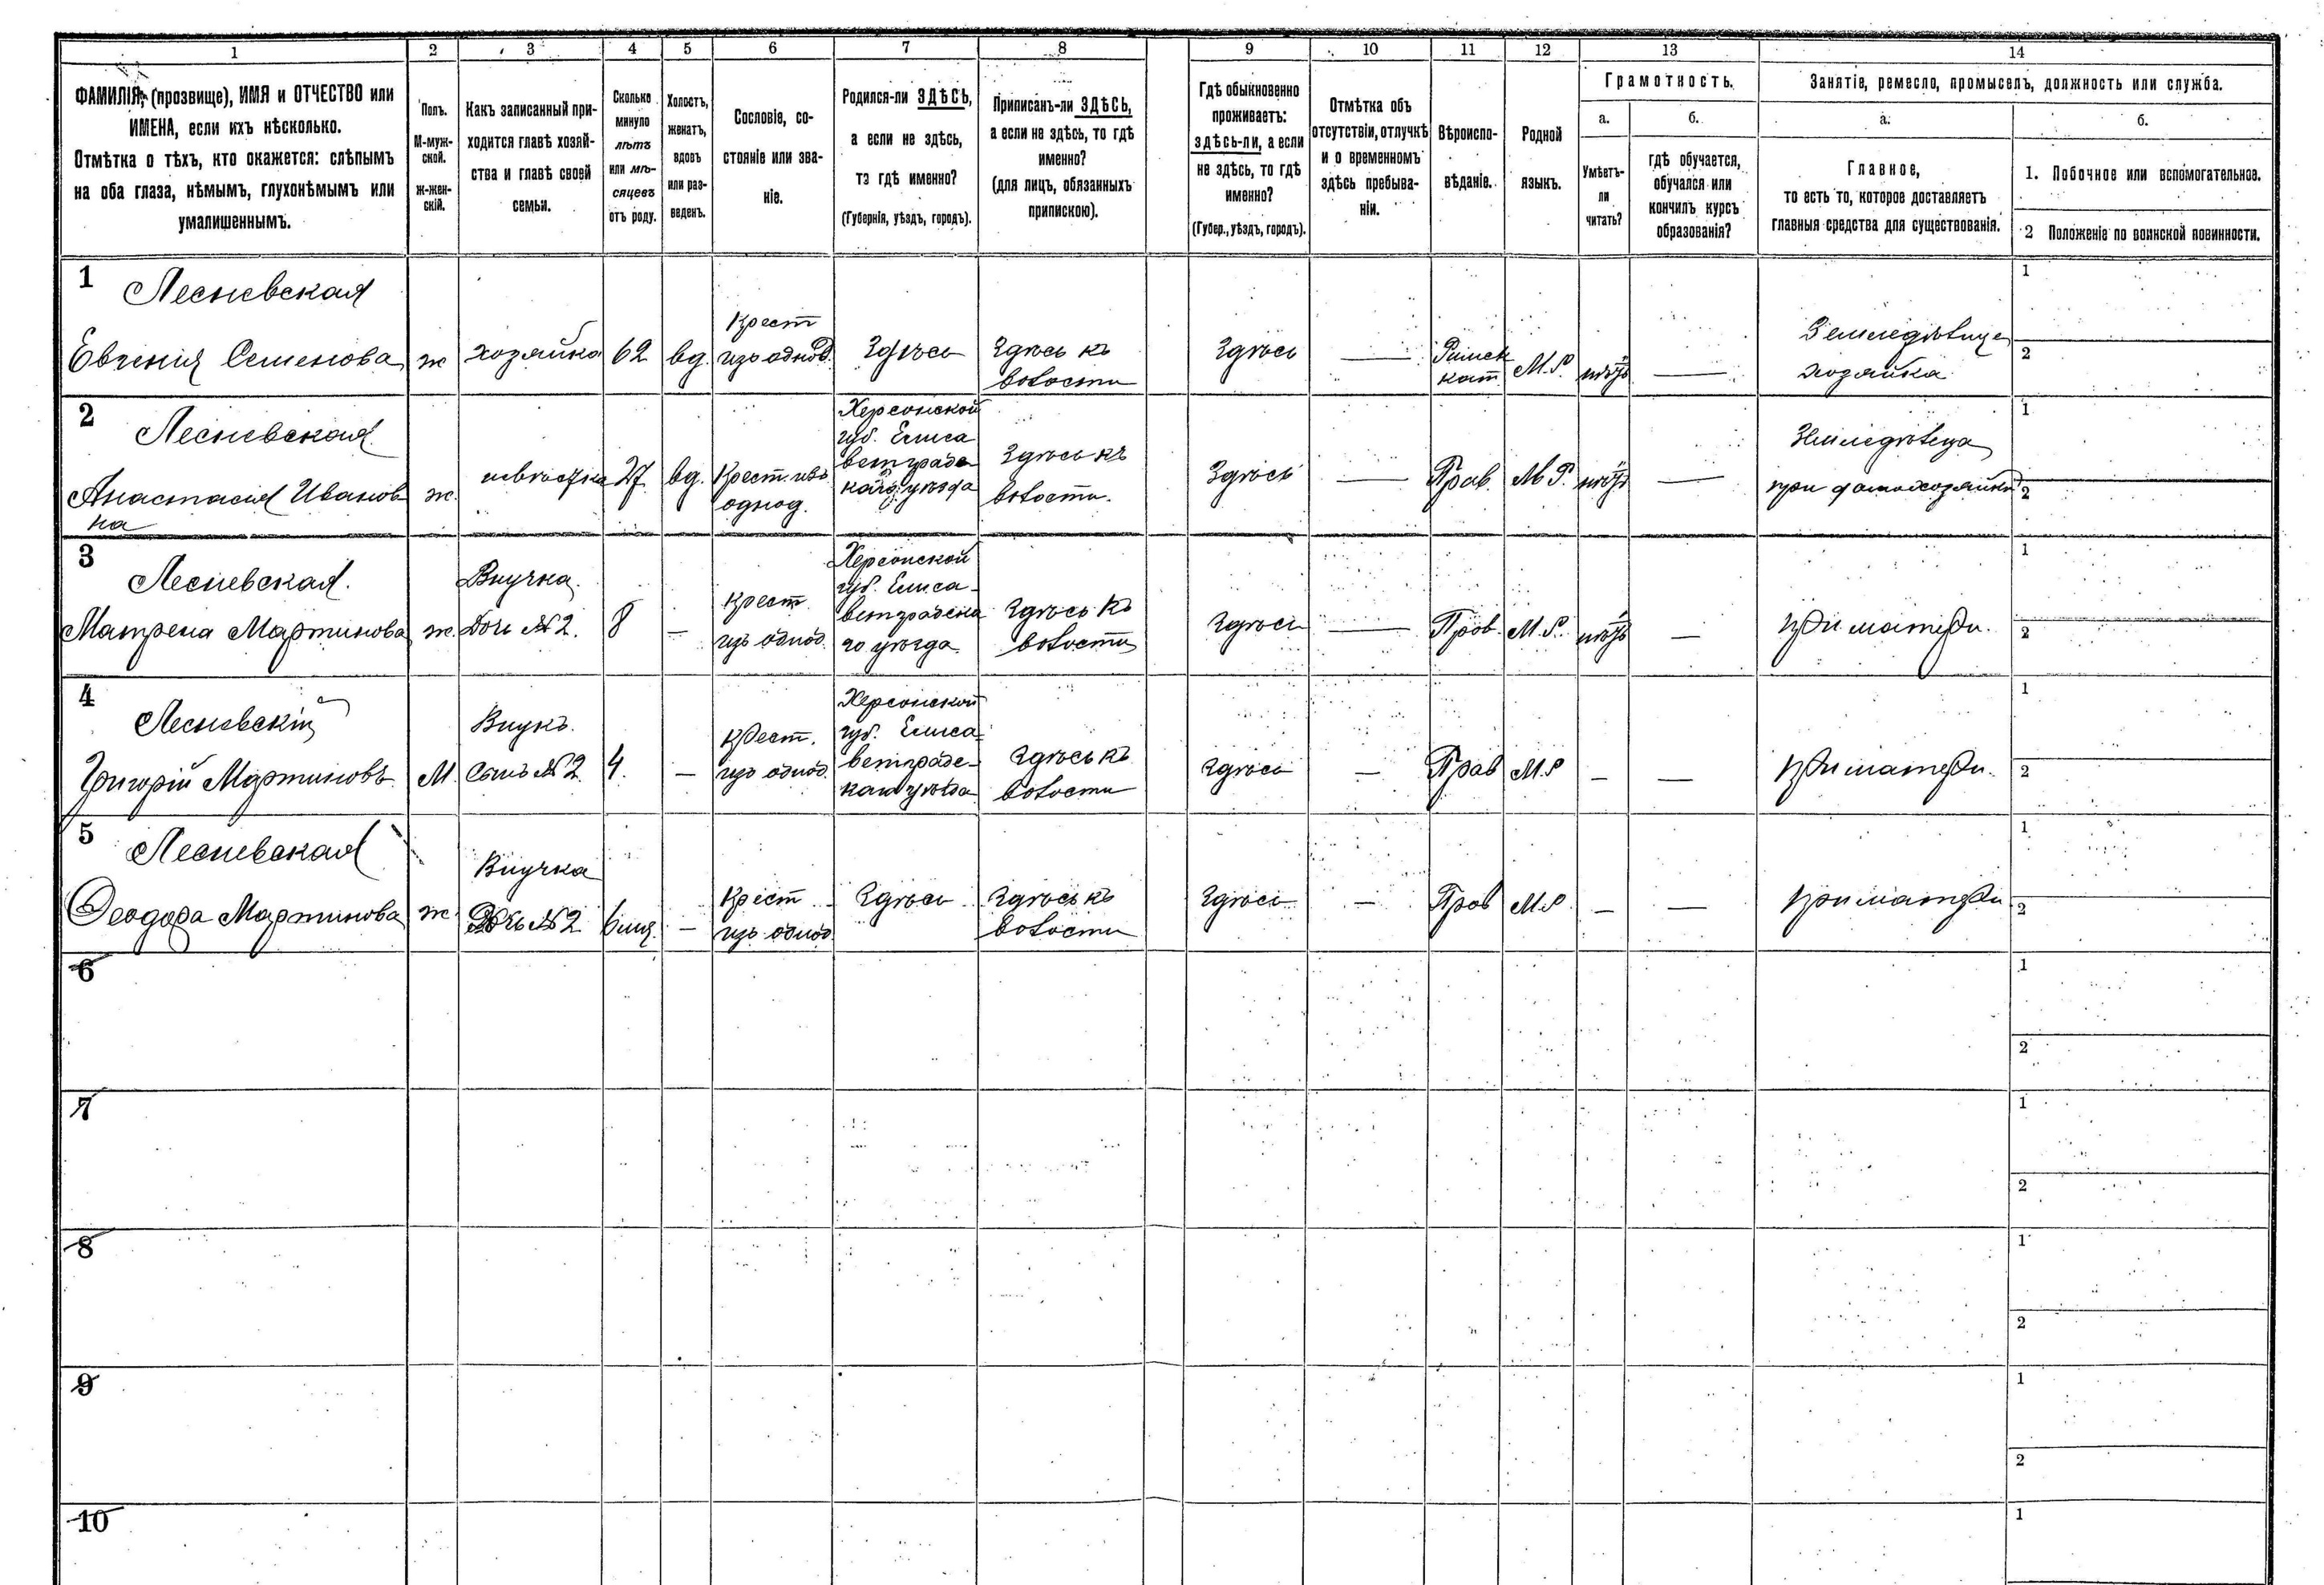 1 2 3 4 5 6 7 8 9 10 11 12 13 14
ФАМИЛІЯ, (прозвище), ИМЯ и ОТЧЕСТВО или
ИМЕНА, если ихъ нѣсколько.
Отмѣтка о тѣхъ, кто окажется: слѣпымъ
на оба глаза, нѣмымъ, глухонѣмымъ или
умалишеннымъ.
Полъ.
М-муж-
ской.
ж-жен-
скій.
Какъ записанный при-
ходится главѣ хозяй-
ства и главѣ своей
семьи.
Сколько
минуло
лѣтъ
или мѣ-
сяцевъ
отъ роду.
Холостъ,
женатъ,
вдовъ
или раз-
веденъ.
Сословіе, со-
стояніе или зва-
ніе.
Родился-ли ЗДѢСЬ,
а если не здѣсь,
то гдѣ именно?
(Губернія, уѣздъ, городъ).
Приписанъ-ли ЗДѢСЬ,
а если не здѣсь, то гдѣ
именно?
(для лицъ, обязанныхъ
припискою).
Гдѣ обыкновенно
проживаетъ:
здѣсь-ли, а если
не здѣсь, то гдѣ
именно?
(Губер., уѣздъ, городъ).
Отмѣтка объ
отсутствіи, отлучкѣ
и о временномъ
здѣсь пребыва-
ніи.
Вѣроиспо-
вѣданіе.
Родной
языкъ.
Грамотность.
а.
Умѣетъ-
ли
читать?
б.
гдѣ обучается,
обучался или
кончилъ курсъ
образованія?
Занятіе, ремесло, промыселъ, должность или служба.
а.
Главное,
то есть то, которое доставляетъ
главныя средства для существованія.
б.
1. Побочное или вспомогательное.
2 Положеніе по воинской повинности.
1 Лесневская
Евгенія Семенова
ж
хозяйка
62
вд.
Крест
изъ однод.
Здѣсь
Здѣсь къ
волости
Здѣсь
—
Римск
кат.
М.Р.
нѣтъ
—
Земледѣлица
хозяйка
1
2
2 Лесневская
Анастасія Иванов
на
ж.
невѣстка
27
вд.
Крест. изъ
однод.
Херсонской
губ. Елиса
ветградс
каго уѣзда
Здѣсь къ
волости.
Здѣсь
—
Прав.
М.Р.
нѣтъ
—
Земледѣлица
при домохозяйкѣ
1
2
3 Лесневская.
Матрена Мартинова
ж.
Внучка.
Дочь №2.
8
—
Крест.
изъ однод.
Херсонской
губ. Елиса-
ветградска
го уѣзда.
Здѣсь къ
волости
Здѣсь
—
Прав.
М.Р.
нѣтъ
—
При матери.
1
2
4 Лесневскій
Григорій Мартиновъ
М.
Внукъ.
Сынъ №2.
4.
—
Крест.
изъ однод.
Херсонской
губ. Елиса-
ветградс-
каго уѣзда
Здѣсь къ
волости
Здѣсь
—
Прав
М.Р
—
—
При матери.
1
2
5 Лесневская
Феодора Мартинова
ж.
Внучка
Дочь №2
6 мц.
—
Крест.
изъ однод.
Здѣсь
Здѣсь къ
волости
Здѣсь
—
Прав
М.Р.
—
—
При матери
1
2
6
1
2
7
1
2
8
1
2
9
1
2
10
1